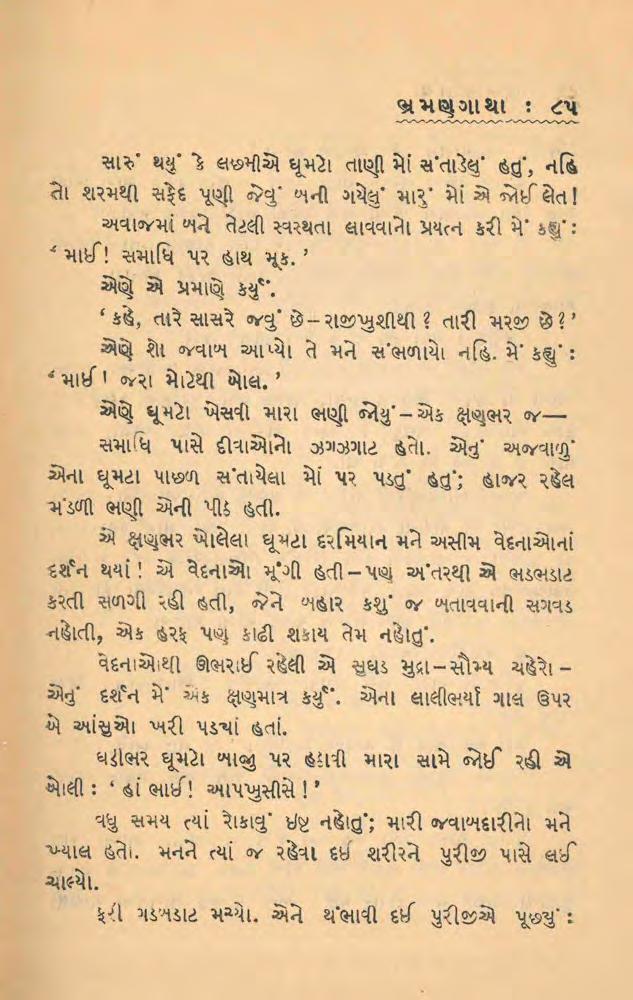 ભ્રમણગાથા : ૮૫
સારું થયું કે લછમીએ ઘૂમટો તાણી મોં સંતાડેલું હતું, નહિ
તો શરમથી સફેદ પૂણી જેવું બની ગયેલું મારું મોં એ જોઈ લેત!
અવાજમાં બને તેટલી સ્વસ્થતા લાવવાનો પ્રયત્ન કરી મેં કહ્યું:
‘માઈ! સમાધિ પર હાથ મૂક.’
એણે એ પ્રમાણે કર્યું.
‘કહે, તારે સાસરે જવું છે–રાજીખુશીથી? તારી મરજી છે?’
એણે શો જવાબ આપ્યો તે મને સંભળાયો નહિ. મેં કહ્યું:
‘માઈ! જરા મોટેથી બોલ.’
એણે ઘૂમટો ખેસવી મારા ભણી જોયું–એક ક્ષણભર જ—
સમાધિ પાસે દીવાઓનો ઝગઝગાટ હતો. એનું અજવાળું
એના ઘૂમટા પાછળ સંતાયેલા મોં પર પડતું હતું; હાજર રહેલ
મંડળી ભણી એની પીઠ હતી.
એ ક્ષણભર ખોલેલા ઘૂમટા દરમિયાન મને અસીમ વેદનાઓનાં
દર્શન થયાં! એ વેદનાઓ મૂંગી હતી–પણ અંતરથી એ ભડભડાટ
કરતી સળગી રહી હતી, જેને બહાર કશું જ બતાવવાની સગવડ
નહોતી, એક હરફ પણ કાઢી શકાય તેમ નહોતું.
વેદનાઓથી ઊભરાઈ રહેલી એ સુઘડ મુદ્રા–સૌમ્ય ચહેરો–
એનું દર્શન મેં એક ક્ષણમાત્ર કર્યું. એના લાલીભર્યા ગાલ ઉપર
બે આંસુઓ ખરી પડ્યાં હતાં.
ઘડીભર ઘૂમટો બાજુ પર હઠાવી મારા સામે જોઈ રહી એ
બોલી: ‘હાં ભાઈ! આપખુસીસે!’
વધુ સમય ત્યાં રોકાવું ઇષ્ટ નહોતું; મારી જવાબદારીનો મને
ખ્યાલ હતો. મનને ત્યાં જ રહેવા દઈ શરીરને પુરીજી પાસે લઈ
ચાલ્યો.
ફરી ગડબડાટ મચ્યો. એને થંભાવી દઈ પુરીજીએ પૂછ્યું: